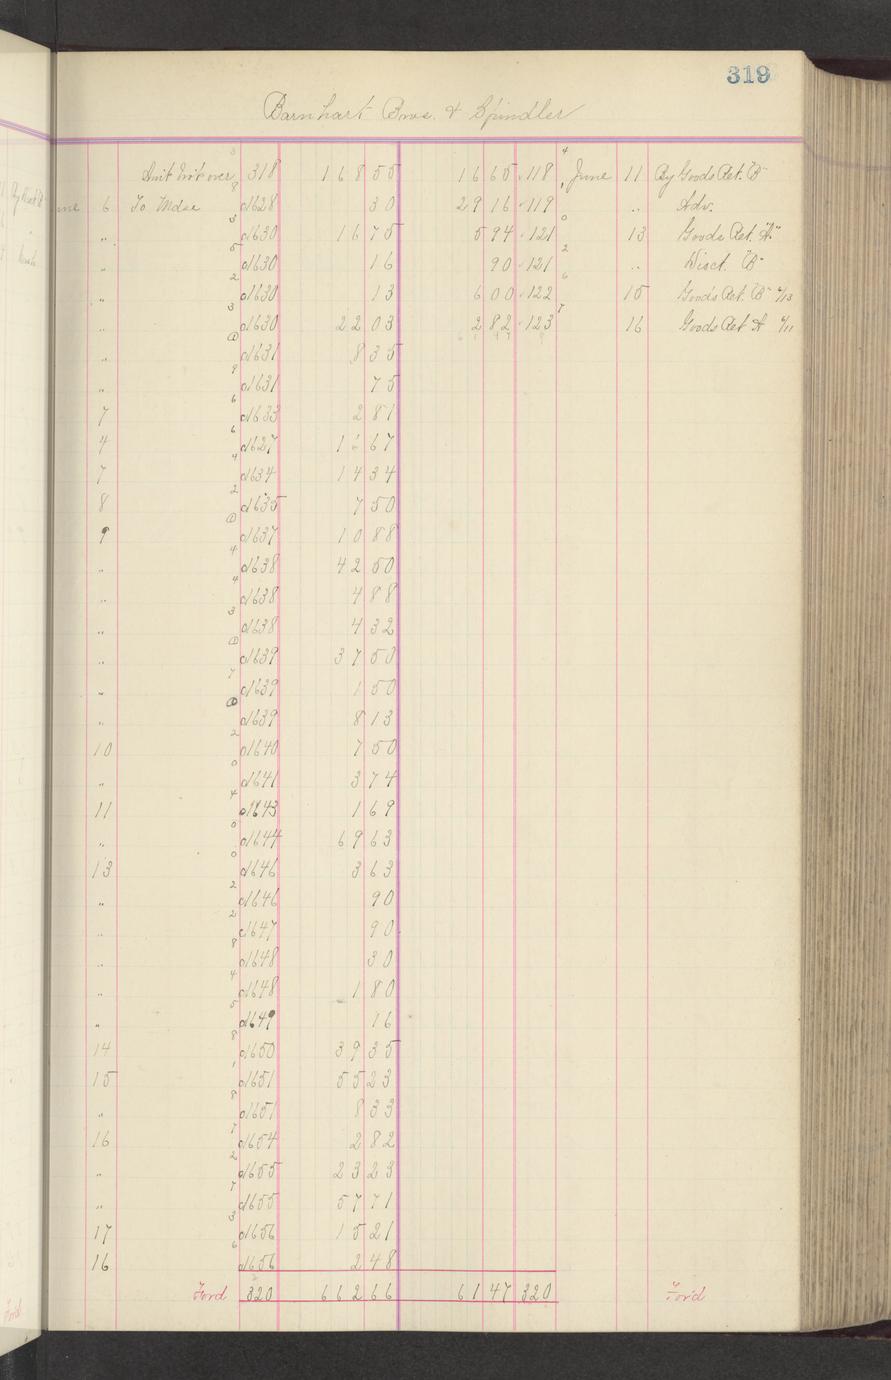 319
Barnhart Bros. & Spindler
318 168 55 16 65 118 June 11 By Goods Ret. "B"
6 To Mdse 8 1628 30 29 16 119 " Adv.
" 3 1630 16 75 5 94 121 13 Goods Ret. "A"
" 5 1630 16 90 121 " Disct. "B"
" 2 1630 13 6 00 122 15 Goods Ret. "B" 6/13
" 3 1630 22 03 2 82 123 16 Goods Ret A 6/11
" 1631 8 35
" 9 1631 75
7 6 1633 2 81
4 6 1627 1 67
7 4 1634 14 34
8 2 1635 7 50
9 1637 10 88
" 4 1638 42 50
" 4 1638 4 88
" 3 1638 4 32
" 1639 37 50
" 7 1639 1 50
" 1639 8 13
10 2 1640 7 50
" 0 1641 3 74
11 4 1643 1 69
" 0 1644 69 63
13 0 1646 3 63
" 2 1646 90
" 2 1647 90
" 8 1648 30
" 4 1648 1 80
" 5 1649 16
14 8 1650 39 35
15 1 1651 55 23
" 8 1651 8 33
16 7 1654 2 82
" 2 1655 23 23
" 7 1655 57 71
17 3 1656 15 21
16 6 1656 2 48
Ford 320 662 66 61 47 320 Ford